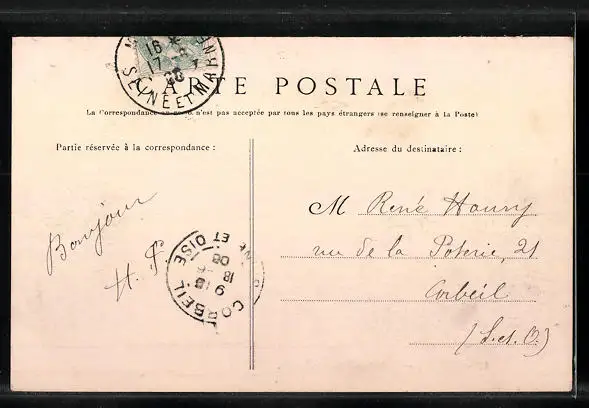 16
17
SEINE ET MARNE
CARTE POSTALE
La Correspondance n'est pas acceptée par tous les pays étrangers (se renseigner à la Poste)
Partie réservée à la correspondance :
Adresse du destinataire :
Bonjour
H.
M René
rue de la Poterie, 21
Corbeil
(S. et. O.)
CORBEIL
ET OISE
9
18
08